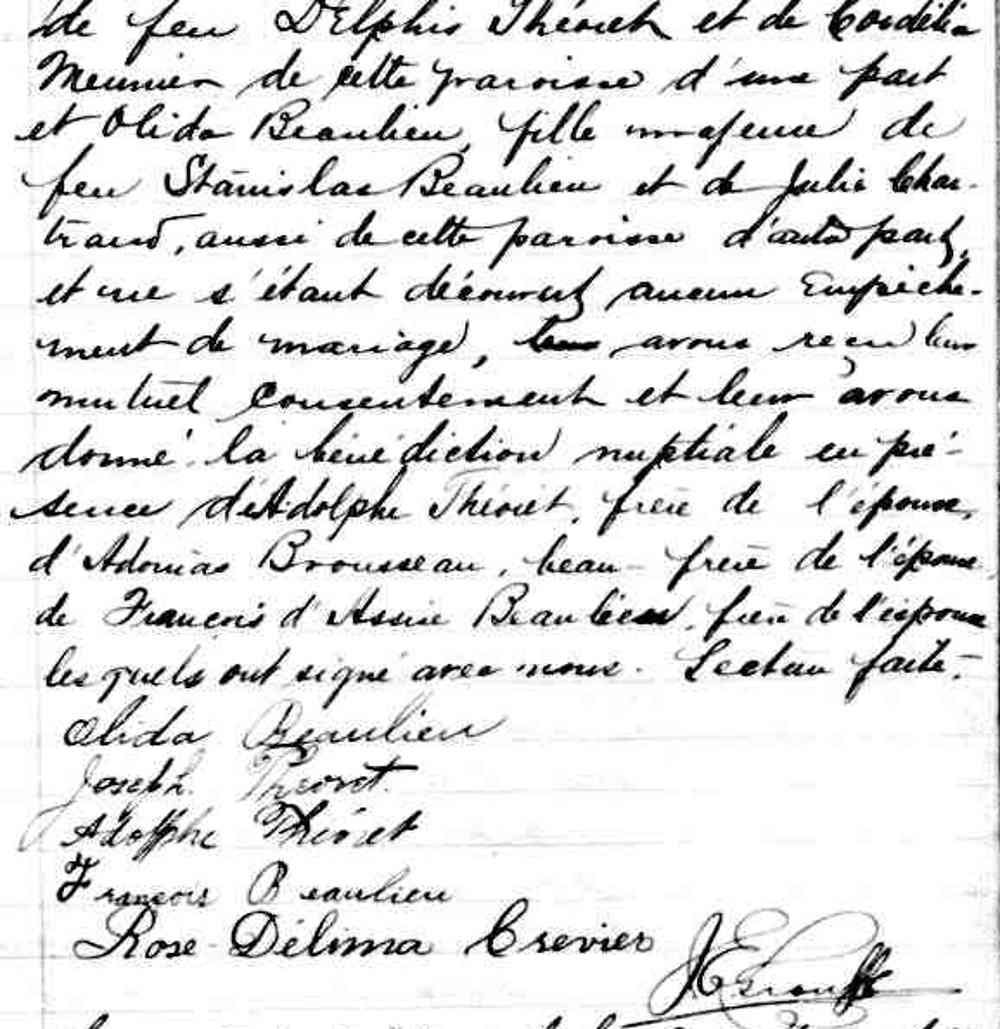 de feu DElphis Théoret et de Cordélia
Meunier de cette paroisse d'une part
et Olida Beaulieu, fille majeure de
feu Stanislas Beaulieu et de Julie Char-
trand, aussi de cette paroisse d'autre part,
et ne s'étant découvert aucun Empêche-
ment de mariage, avons reçu leur
mutuel consentement et leur avons
donné la bénédiction nuptiale en pré-
sence d'Adolphe Théoret, frère de l'époux,
d'Adonias Brousseau, beau-frère de l'épouse,
de François d'Assise Beaulieu, frère de l'épouse
lesquels ont signé avec nous. Lecture faite.
Olida Beaulieu
Joseph Théoret.
Adolphe Théoret
François Beaulieu
Rose-Délima Crevier